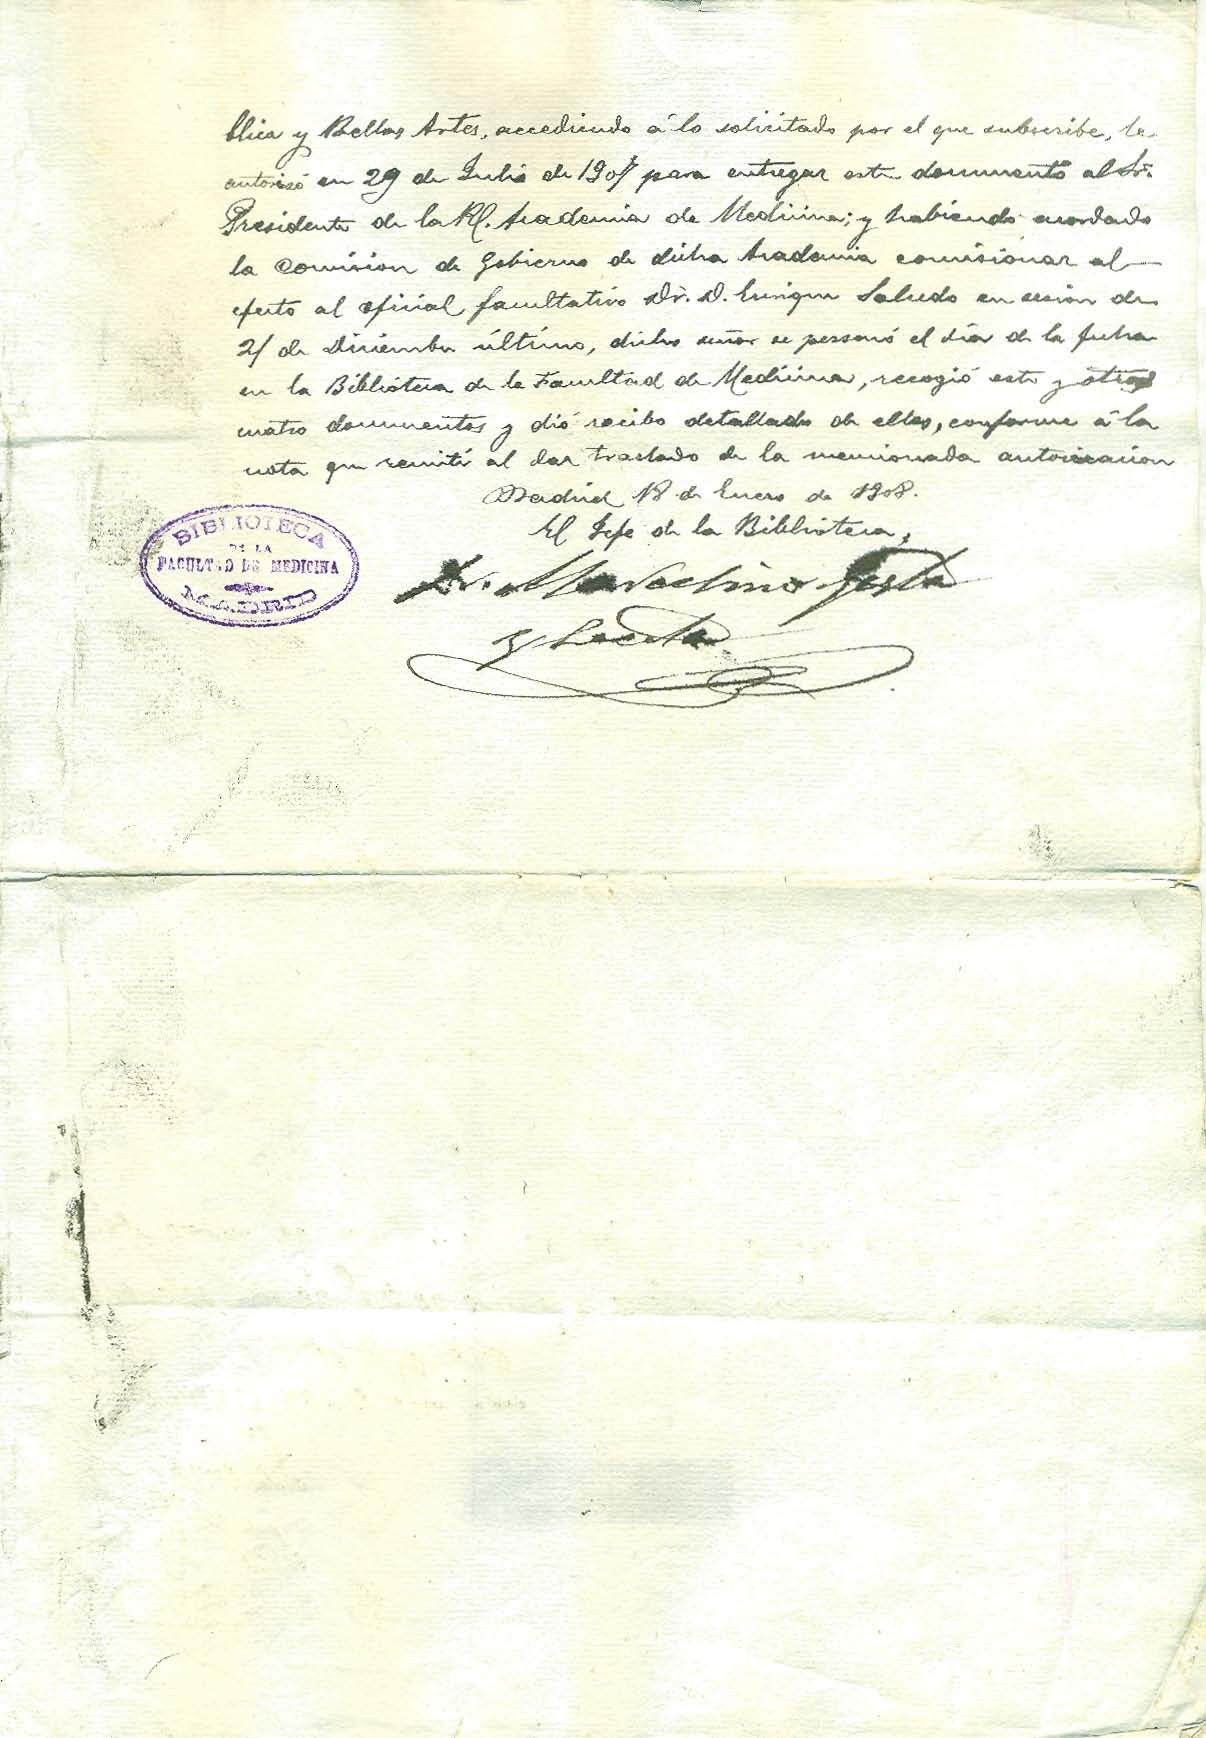 blica y Bellas Artes, accediendo á lo solicitado por el que subscribe, le
autorizó en 29 de Julio de 1907 para entregar este documento al Sr.
Presidente de la Rl. Academia de Medicina; y habiendo acordado
la Comision de Gobierno de dicha Academia comisionar al
efecto al oficial facultativo Dr. D. Enrique Salcedo en sesión de
21 de Diciembre último, dicho señor se personó el día de la fecha
en la Biblioteca de la Facultad de Medicina, recogió este y otros
cuatro documentos y dió recibo detallado de ellos, conforme á la
nota que remití al dar traslado de la mencionada autorización
Madrid 18 de Enero de 1908.
El Jefe de la Biblioteca,
BIBLIOTECA
DE LA
FACULTAD DE MEDICINA
MADRID
Dr. Marcelino Gesta
y Leceta